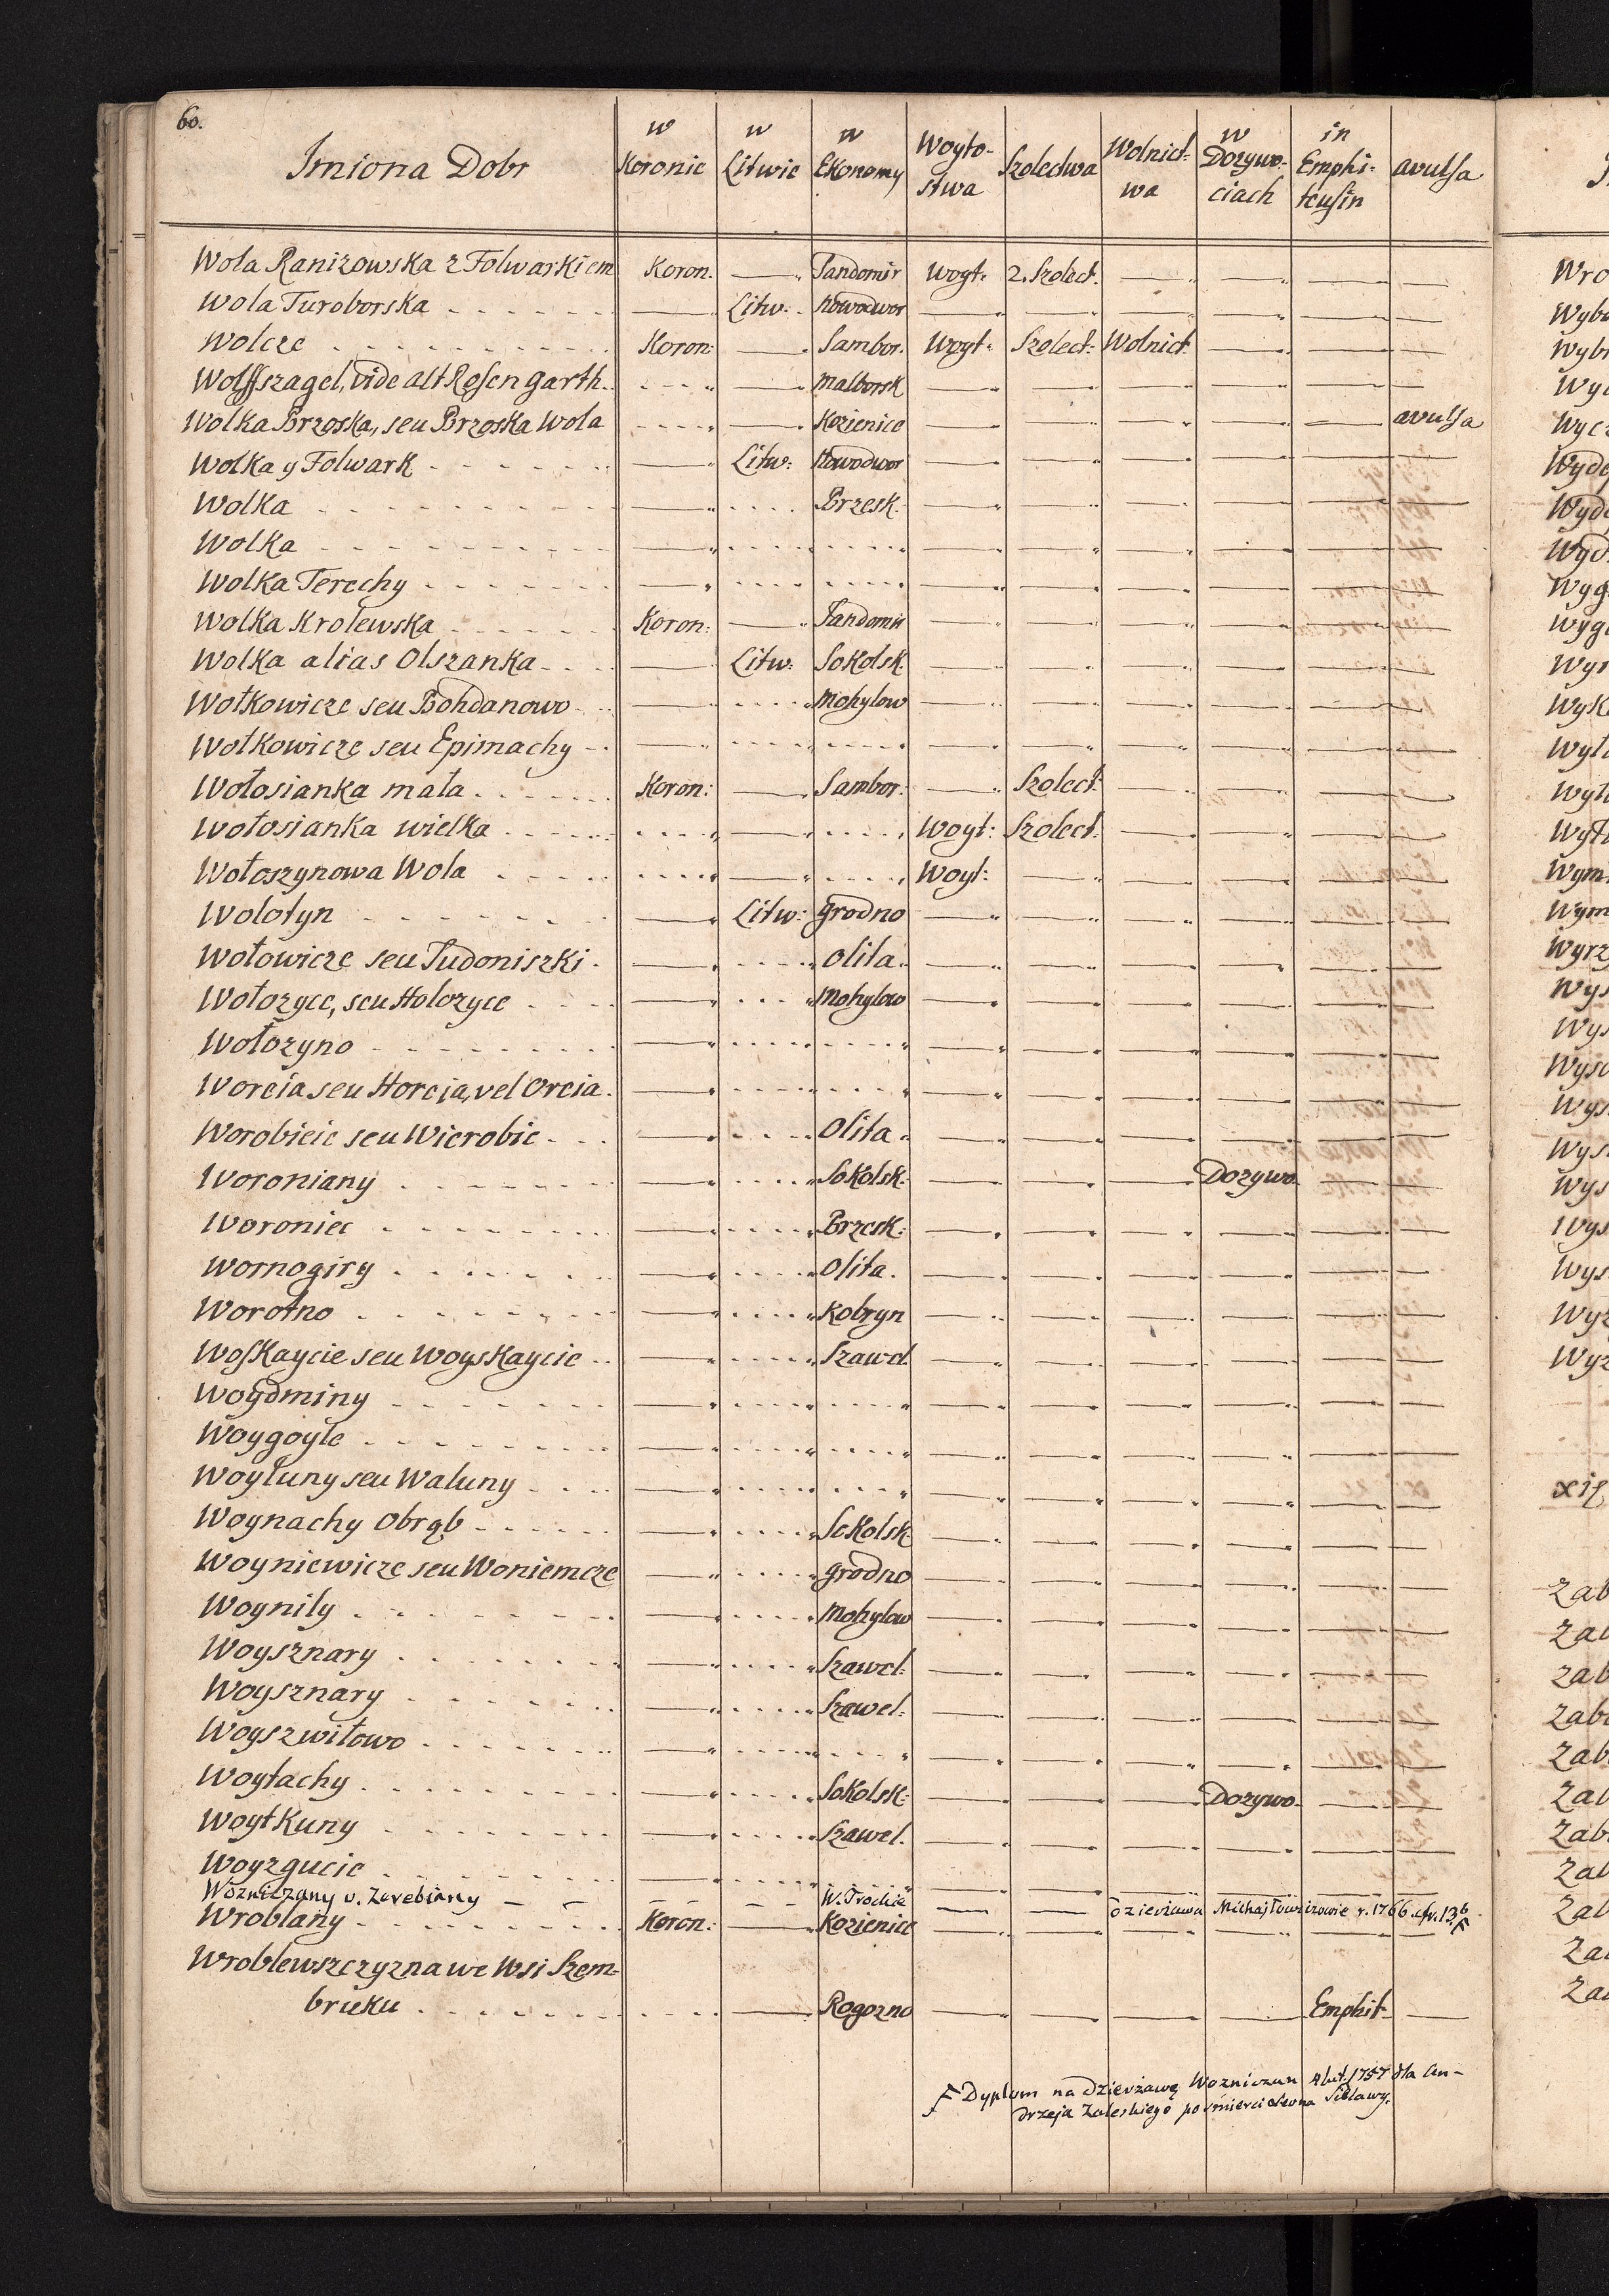 60.
Imiona Dobr | w Koronie | w Litwie | w Ekonomy | Woyto-stwa | Szolectwa | Wolnict-wa | w Dozywo-ciach | in Emphi-teusin | avulsa
Wola Ranizowska z Folwarkiem Koron: Sandomir Woyt: 2. Szolect:
Wola Turoborska Litw: Nowodwor
Wolcze Koron: Sambor. Woyt: Szolect: Wolnict:
Wolffszagel, vide alt Rosengarth. Malborsk
Wolka Brzoska, seu Brzoska Wola Kozienice avulsa
Wolka y Folwark Litw: Nowodwor
Wolka Brzesk.
Wolka
Wolka Terechy
Wolka Krolewska Koron: Sandomir
Wolka alias Olszanka Litw: Sokolsk.
Wołkowicze seu Bohdanowo Mohylow
Wołkowicze seu Epimachy
Wołosianka mała Koron: Sambor: Szolect:
Wołosianka wielka Woyt: Szolect:
Wołoszynowa Wola Woyt:
Wolotyn Litw: Grodno
Wołowicze seu Judoniszki Olita.
Wołozyce, seu Holozyce Mohylow
Wołozyno
Worcia seu Horcia, vel Orcia.
Worobieie seu Wierobie Olita.
Woroniany Sokolsk: Dozywo.
Woroniec Brzesk:
Wornogiry Olita.
Worotno Kobryn
Woskaycie seu Woyskaycie Szawel.
Woydminy
Woygoyle
Woyłuny seu Waluny
Woynachy Obrąb Sokolsk.
Woyniewicze seu Woniemcze Grodno
Woyniły Mohylow
Woysznary Szawel:
Woysznary Szawel:
Woyszwiłowo
Woytachy Sokolsk: Dozywo.
Woytkuny Szawel.
Woyzgucie
Wozniczany v. Zerebiany W. Trockie Dzierżawa Michajłowirowie r. 1766. 13.
Wroblany Koron: Kozienice
Wroblewszczyzna we Wsi Szem-
bruku Rogozno Emphit.
F Dyplom na Dzierżawę Wozniczan 4 lut. 1757 dla An-
drzeja Zaleskiego po śmierci